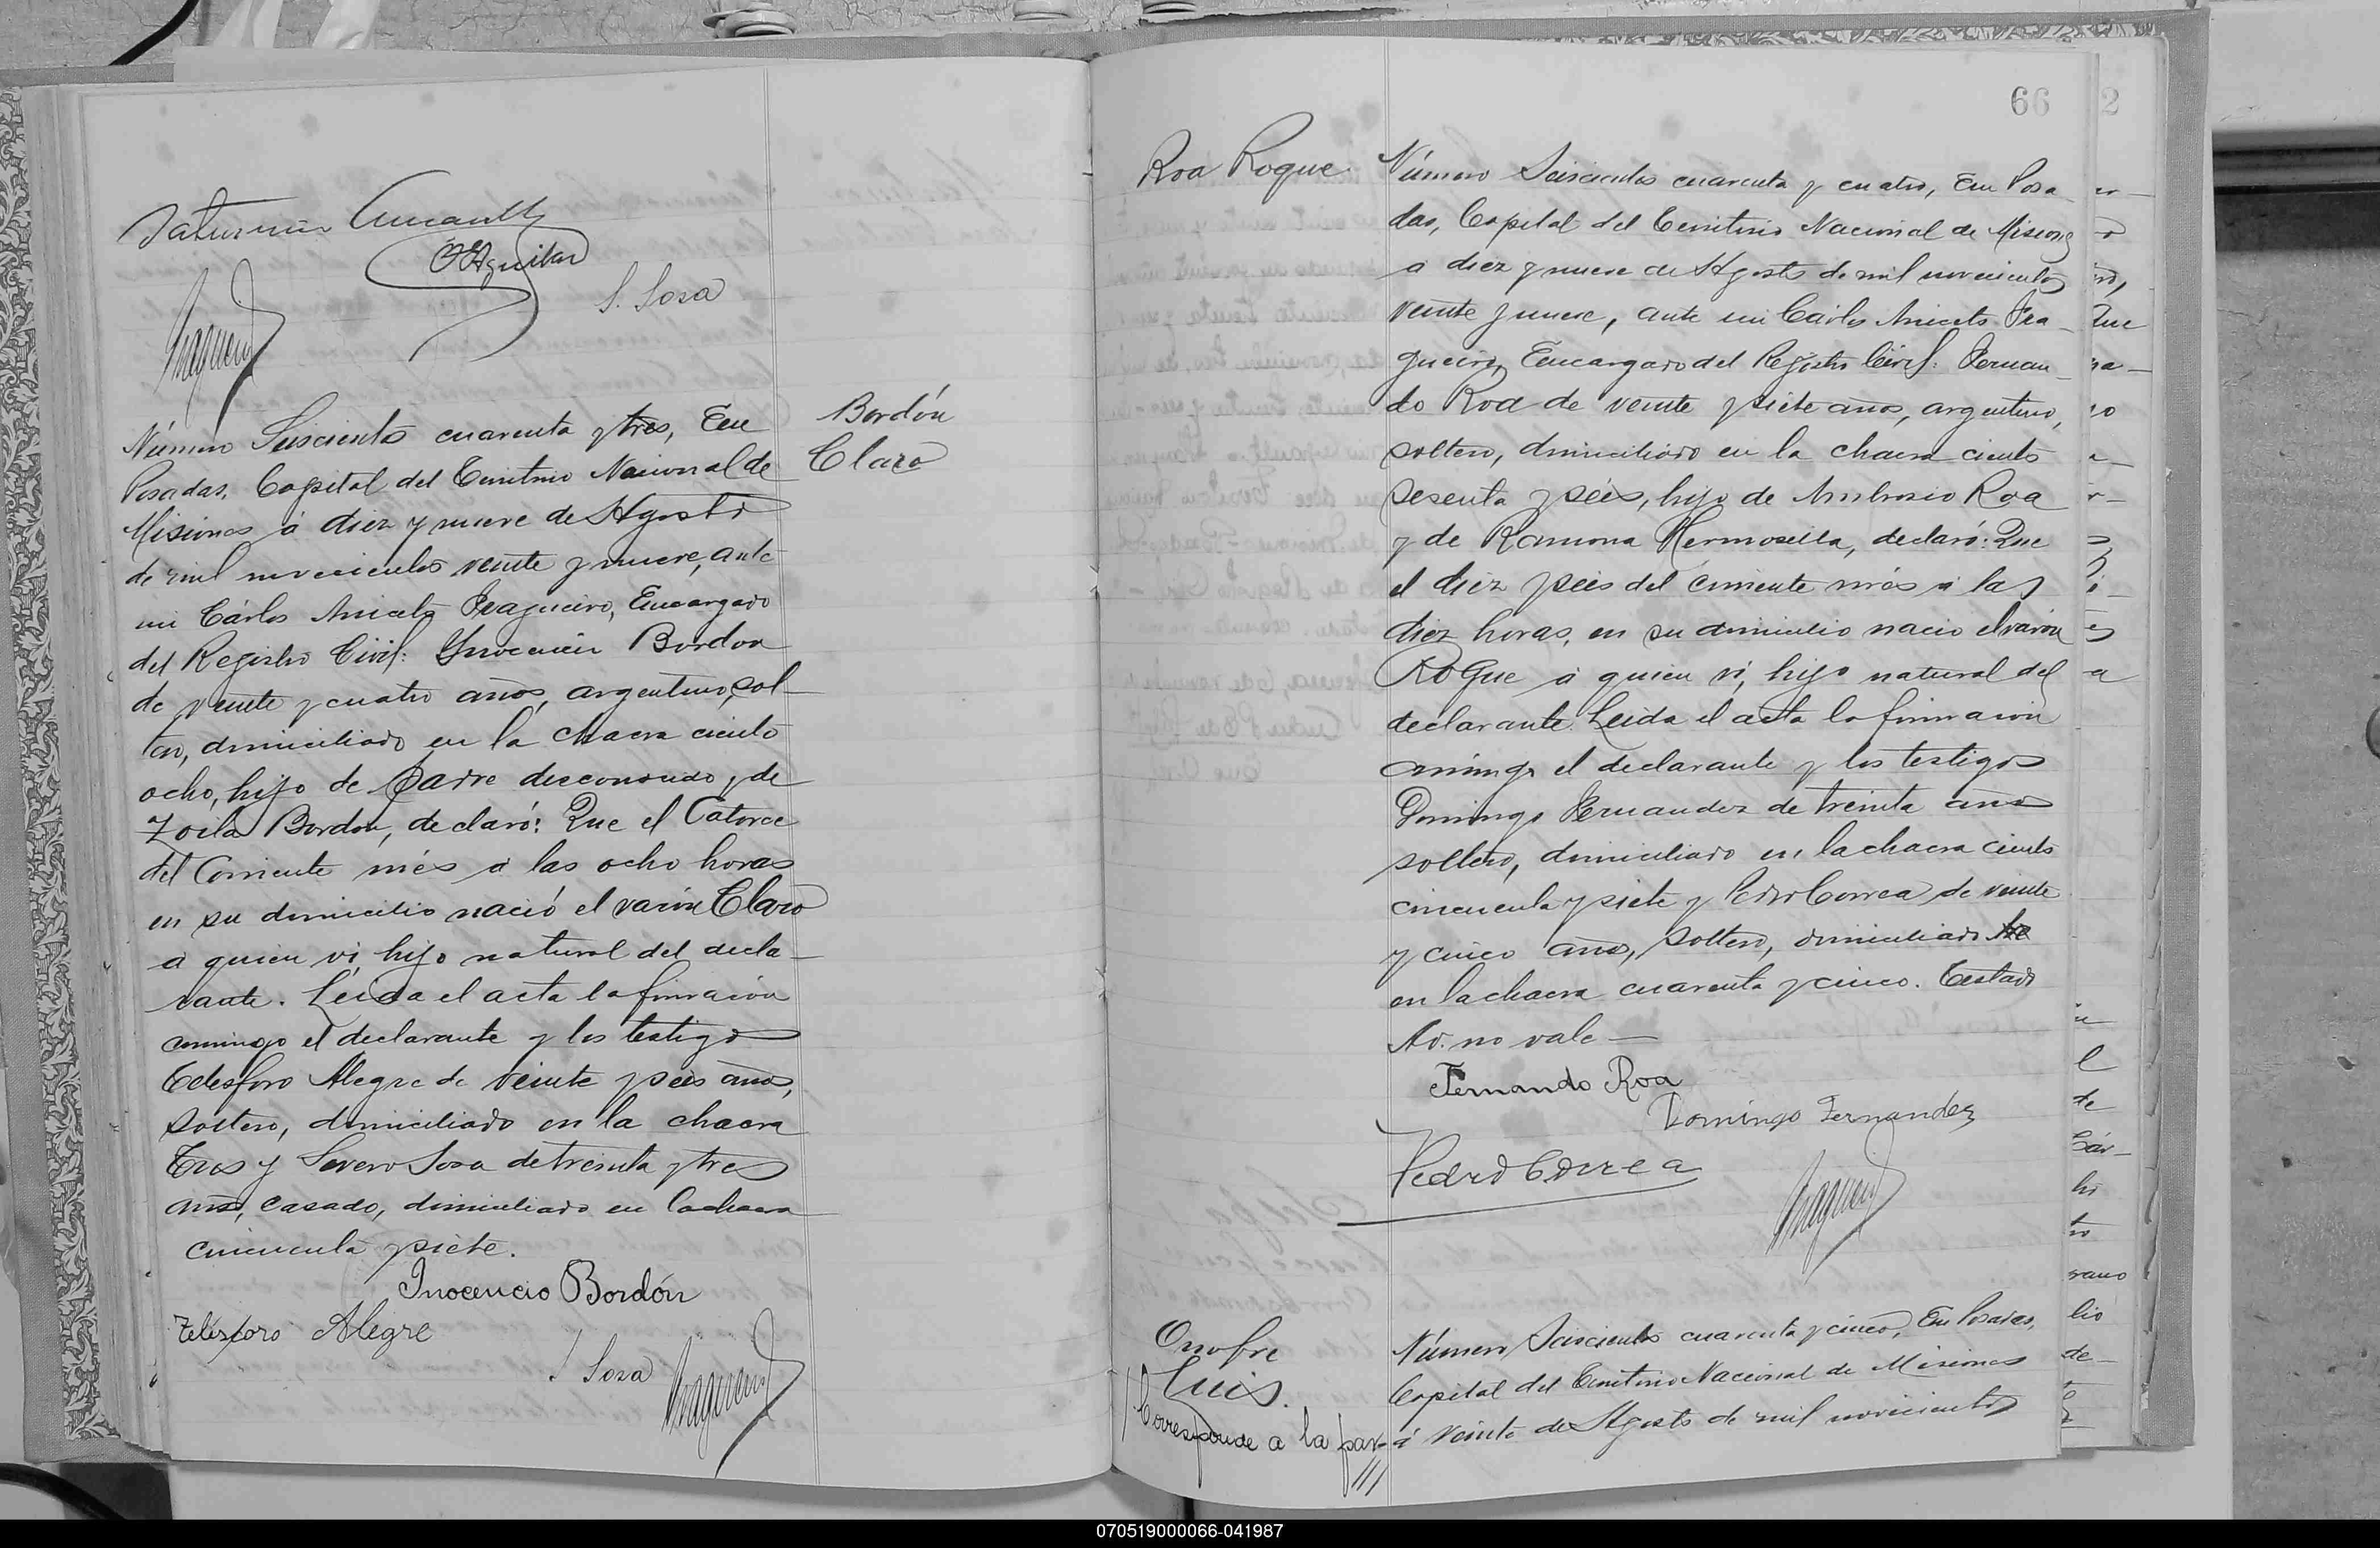 Saturnino
O Aguilar
S. Sosa
Número Seiscientos cuarenta y tres, En
Posadas, Capital del Territorio Nacional de
Misiones á diez y nueve de Agosto
de mil novecientos veinte y nueve, ante
mi Cárlos Aniceto Fragueiro, Encargado
del Registro Civil: Ynocencio Bordon
de veinte y cuatro años, argentino, sol-
tero, domiciliado en la chacra ciento
ocho, hijo de padre desconosido y de
Zoila Bordon, declaró: Que el Catorce
del Corriente més á las ocho horas
en su domicilio nació el varón Claro
á quien ví, hijo natural del decla-
rante. Leida el acta la firmaron
conmigo el declarante y los testigos
Telesforo Alegre de veinte y seis años,
soltero, domiciliado en la chacra
Tres y Severo Sosa de treinta y tres
años, casado, domiciliado en la chacra
cincuenta y siete.
Inocencio Bordón
Telésforo Alegre
S Sosa
Bordón
Claro
66
2
Roa Roque
Número Seiscientos cuarenta y cuatro, En Posa-
das, Capital del Territorio Nacional de Misiones
á diez y nueve de Agosto de mil novecientos
veinte y nueve, ante mi Cárlos Aniceto Fra-
gueiro, Encargado del Registro Civil: Fernan-
do Roa de veinte y siete años, argentino,
soltero, domiciliado en la chacra ciento
sesenta y séis, hijo de Ambrosio Roa
y de Ramona Hermosilla, declaró: Que
el diez y seis del corriente més á las
diez horas, en su domicilio nació el varón
Roque á quien ví, hijo natural del
declarante. Leida el acta la firmaron
conmigo el declarante y los testigos
Domingo Fernandez de treinta años
soltero, domiciliado en la chacra ciento
cincuenta y siete y Pedro Correa de veinte
y cinco años, soltero, domiciliado
en la chacra cuarenta y cinco. Testado
no vale—
Fernando Roa
Domingo Fernandez
Pedro Correa
Onofre
Luis.
Corresponde a la par-
///
Número Seiscientos cuarenta y cinco, En Posadas,
Capital del Territorio Nacional de Misiones
á veinte de Agosto de mil novecientos
070519000066-041987